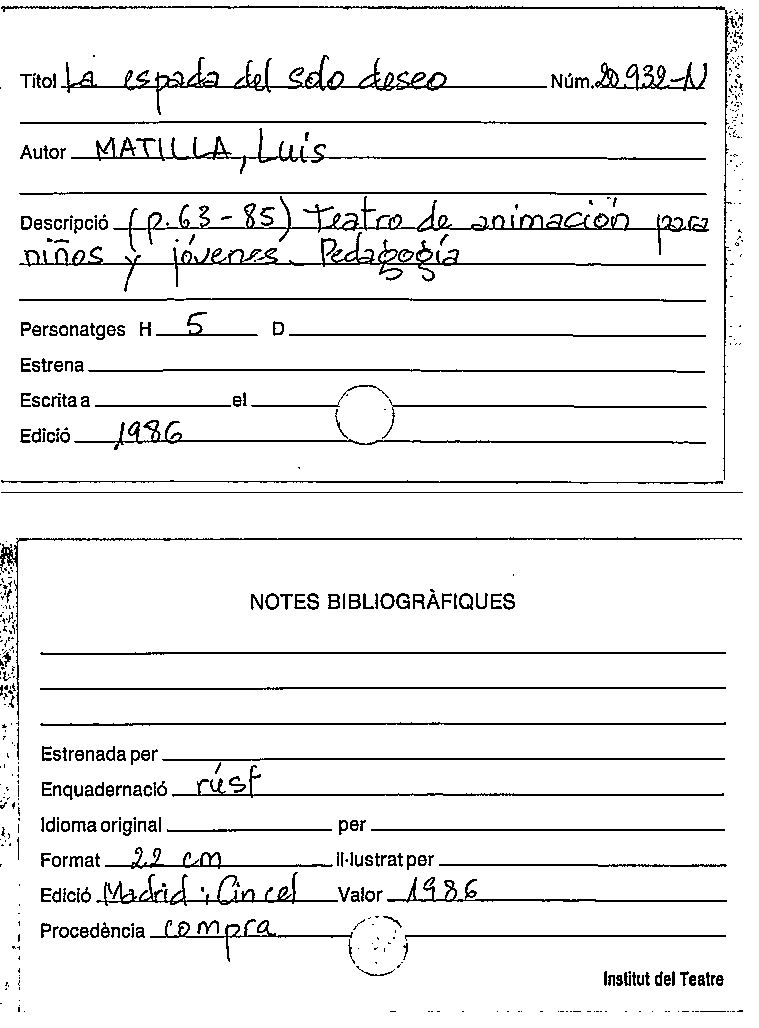 Títol La espada del solo deseo Núm. 20.932-N
Autor MATILLA, Luis
Descripció (p. 63-85) Teatro de animación para
niños y jóvenes. Pedagogía
Personatges H 5 D
Estrena
Escrita a el
Edició 1986
NOTES BIBLIOGRÀFIQUES
Estrenada per
Enquadernació rúsf
Idioma original per
Format 22 cm il·lustrat per
Edició Madrid: Cincel Valor 1986
Procedència compra
Institut del Teatre